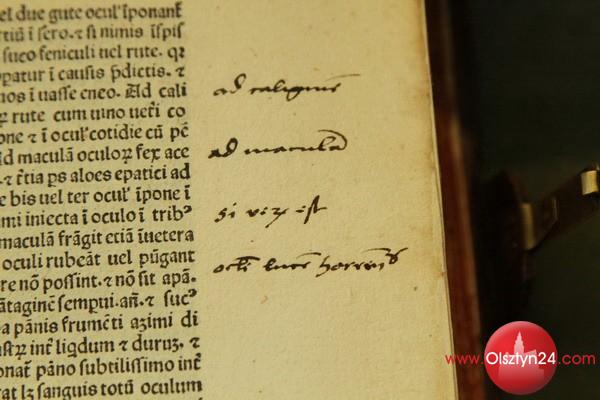 el due gute ocul' īponant̄
tiū ī sero. ⁊ si nimis īspis
suco feniculi uel rute. qr
patur ī causis p̄dictis. ⁊
nos ī uasse eneo. Ad cali
rute cum uino ueti co
one ⁊ ī ocul' cotidie cū pē
d maculā oculoꝝ fex ace
. ⁊ t̄tia ps aloes epatici ad
e bis uel ter ocul' īpone ī
mi iniecta ī oculo ī trib⁹
maculā frāgit etiā īuetera
oculi rubeāt uel pūgant
re nō possīnt. ⁊ nō sīt apā.
ātaginē sempui. añ. ⁊ suc⁹
a pānis frumēti azimi di
int̄ liqdum ⁊ duruz. ⁊
onat̄ pāno subtilissimo int̄
at lꝫ sanguis totū oculum
ad caliginē
ad maculā
si
est
www.Olsztyn24.com